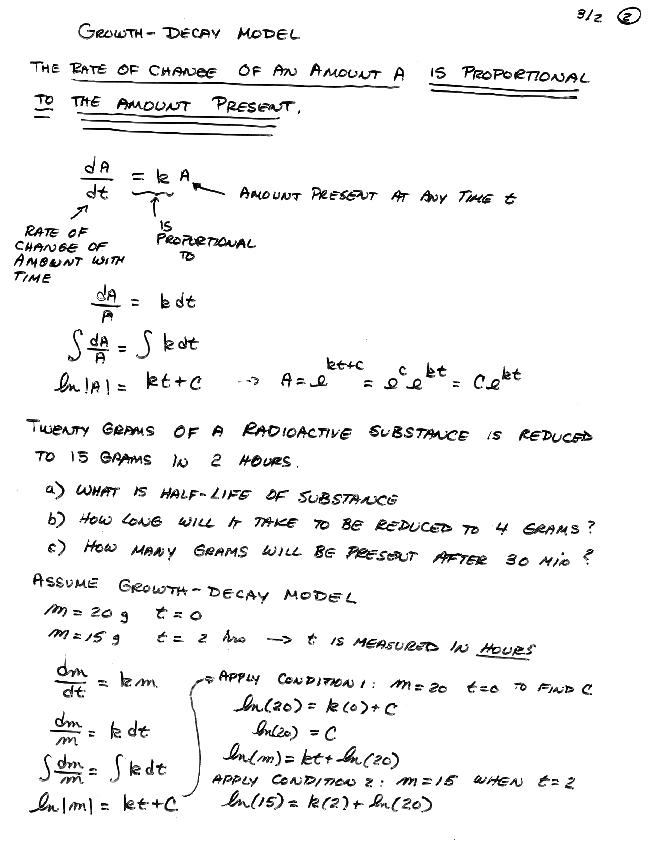 3/2 2
GROWTH - DECAY MODEL
THE RATE OF CHANGE OF AN AMOUNT A IS PROPORTIONAL
TO THE AMOUNT PRESENT.
dA/dt = k A AMOUNT PRESENT AT ANY TIME t
RATE OF CHANGE OF AMOUNT WITH TIME
IS PROPORTIONAL TO
dA/A = k dt
∫ dA/A = ∫ k dt
ln |A| = kt + C --> A = e^(kt+C) = e^c e^kt = C e^kt
TWENTY GRAMS OF A RADIOACTIVE SUBSTANCE IS REDUCED
TO 15 GRAMS IN 2 HOURS.
a) WHAT IS HALF-LIFE OF SUBSTANCE
b) HOW LONG WILL IT TAKE TO BE REDUCED TO 4 GRAMS?
c) HOW MANY GRAMS WILL BE PRESENT AFTER 30 MIN ?
ASSUME GROWTH - DECAY MODEL
m = 20 g t = 0
m = 15 g t = 2 hrs --> t IS MEASURED IN HOURS
dm/dt = k m
dm/m = k dt
∫ dm/m = ∫ k dt
ln |m| = kt + C
APPLY CONDITION 1: m = 20 t = 0 TO FIND C
ln(20) = k(0) + C
ln(20) = C
ln(m) = kt + ln(20)
APPLY CONDITION 2: m = 15 WHEN t = 2
ln(15) = k(2) + ln(20)